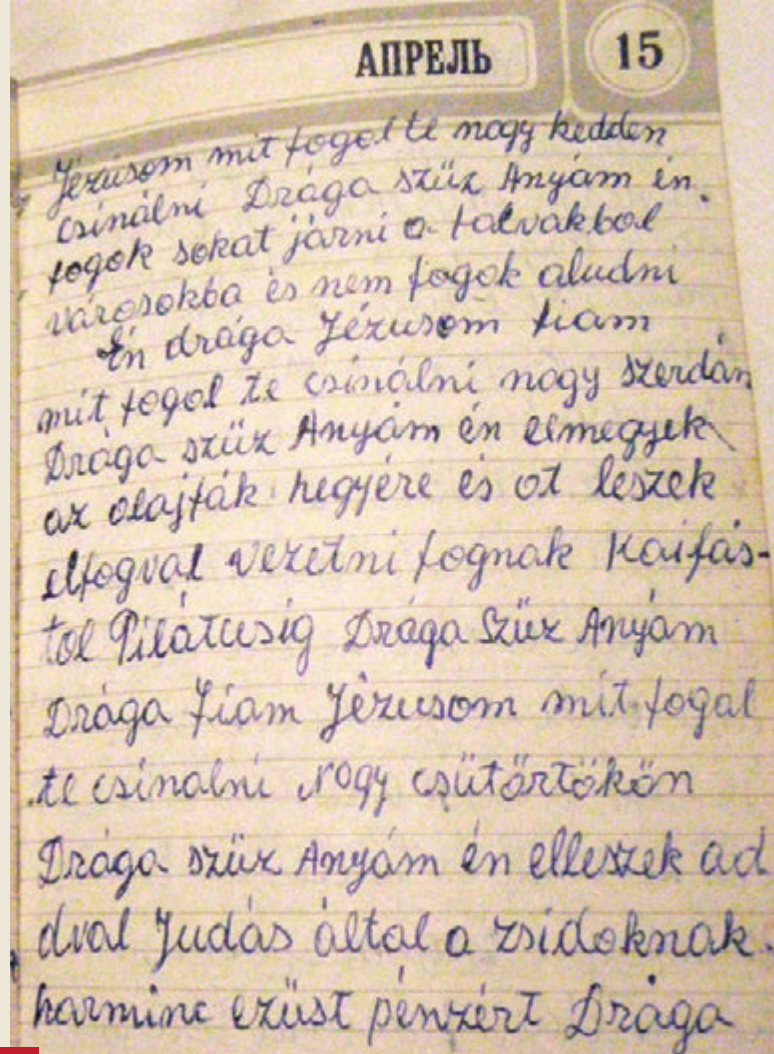 АПРЕЛЬ 15
Jézusom mit fogol te nagy kedden
csinálni Drága szüz Anyám én
fogok sokat járni a falvakbol
városokba és nem fogok aludni
Én drága Jézusom fiam
mit fogol te csinálni nagy szerdán
Drága szüz Anyám én elmegyek
az olajfák hegyére és ot leszek
elfogval vezetni fognak Kaifás-
tol Pilátusig Drága Szüz Anyám
Drága fiam Jézusom mit fogal
te csinalni Nagy csütörtökön
Drága szüz Anyám én elleszek ad
dval Judás által a zsidoknak
harminc ezüst pénzért Drága